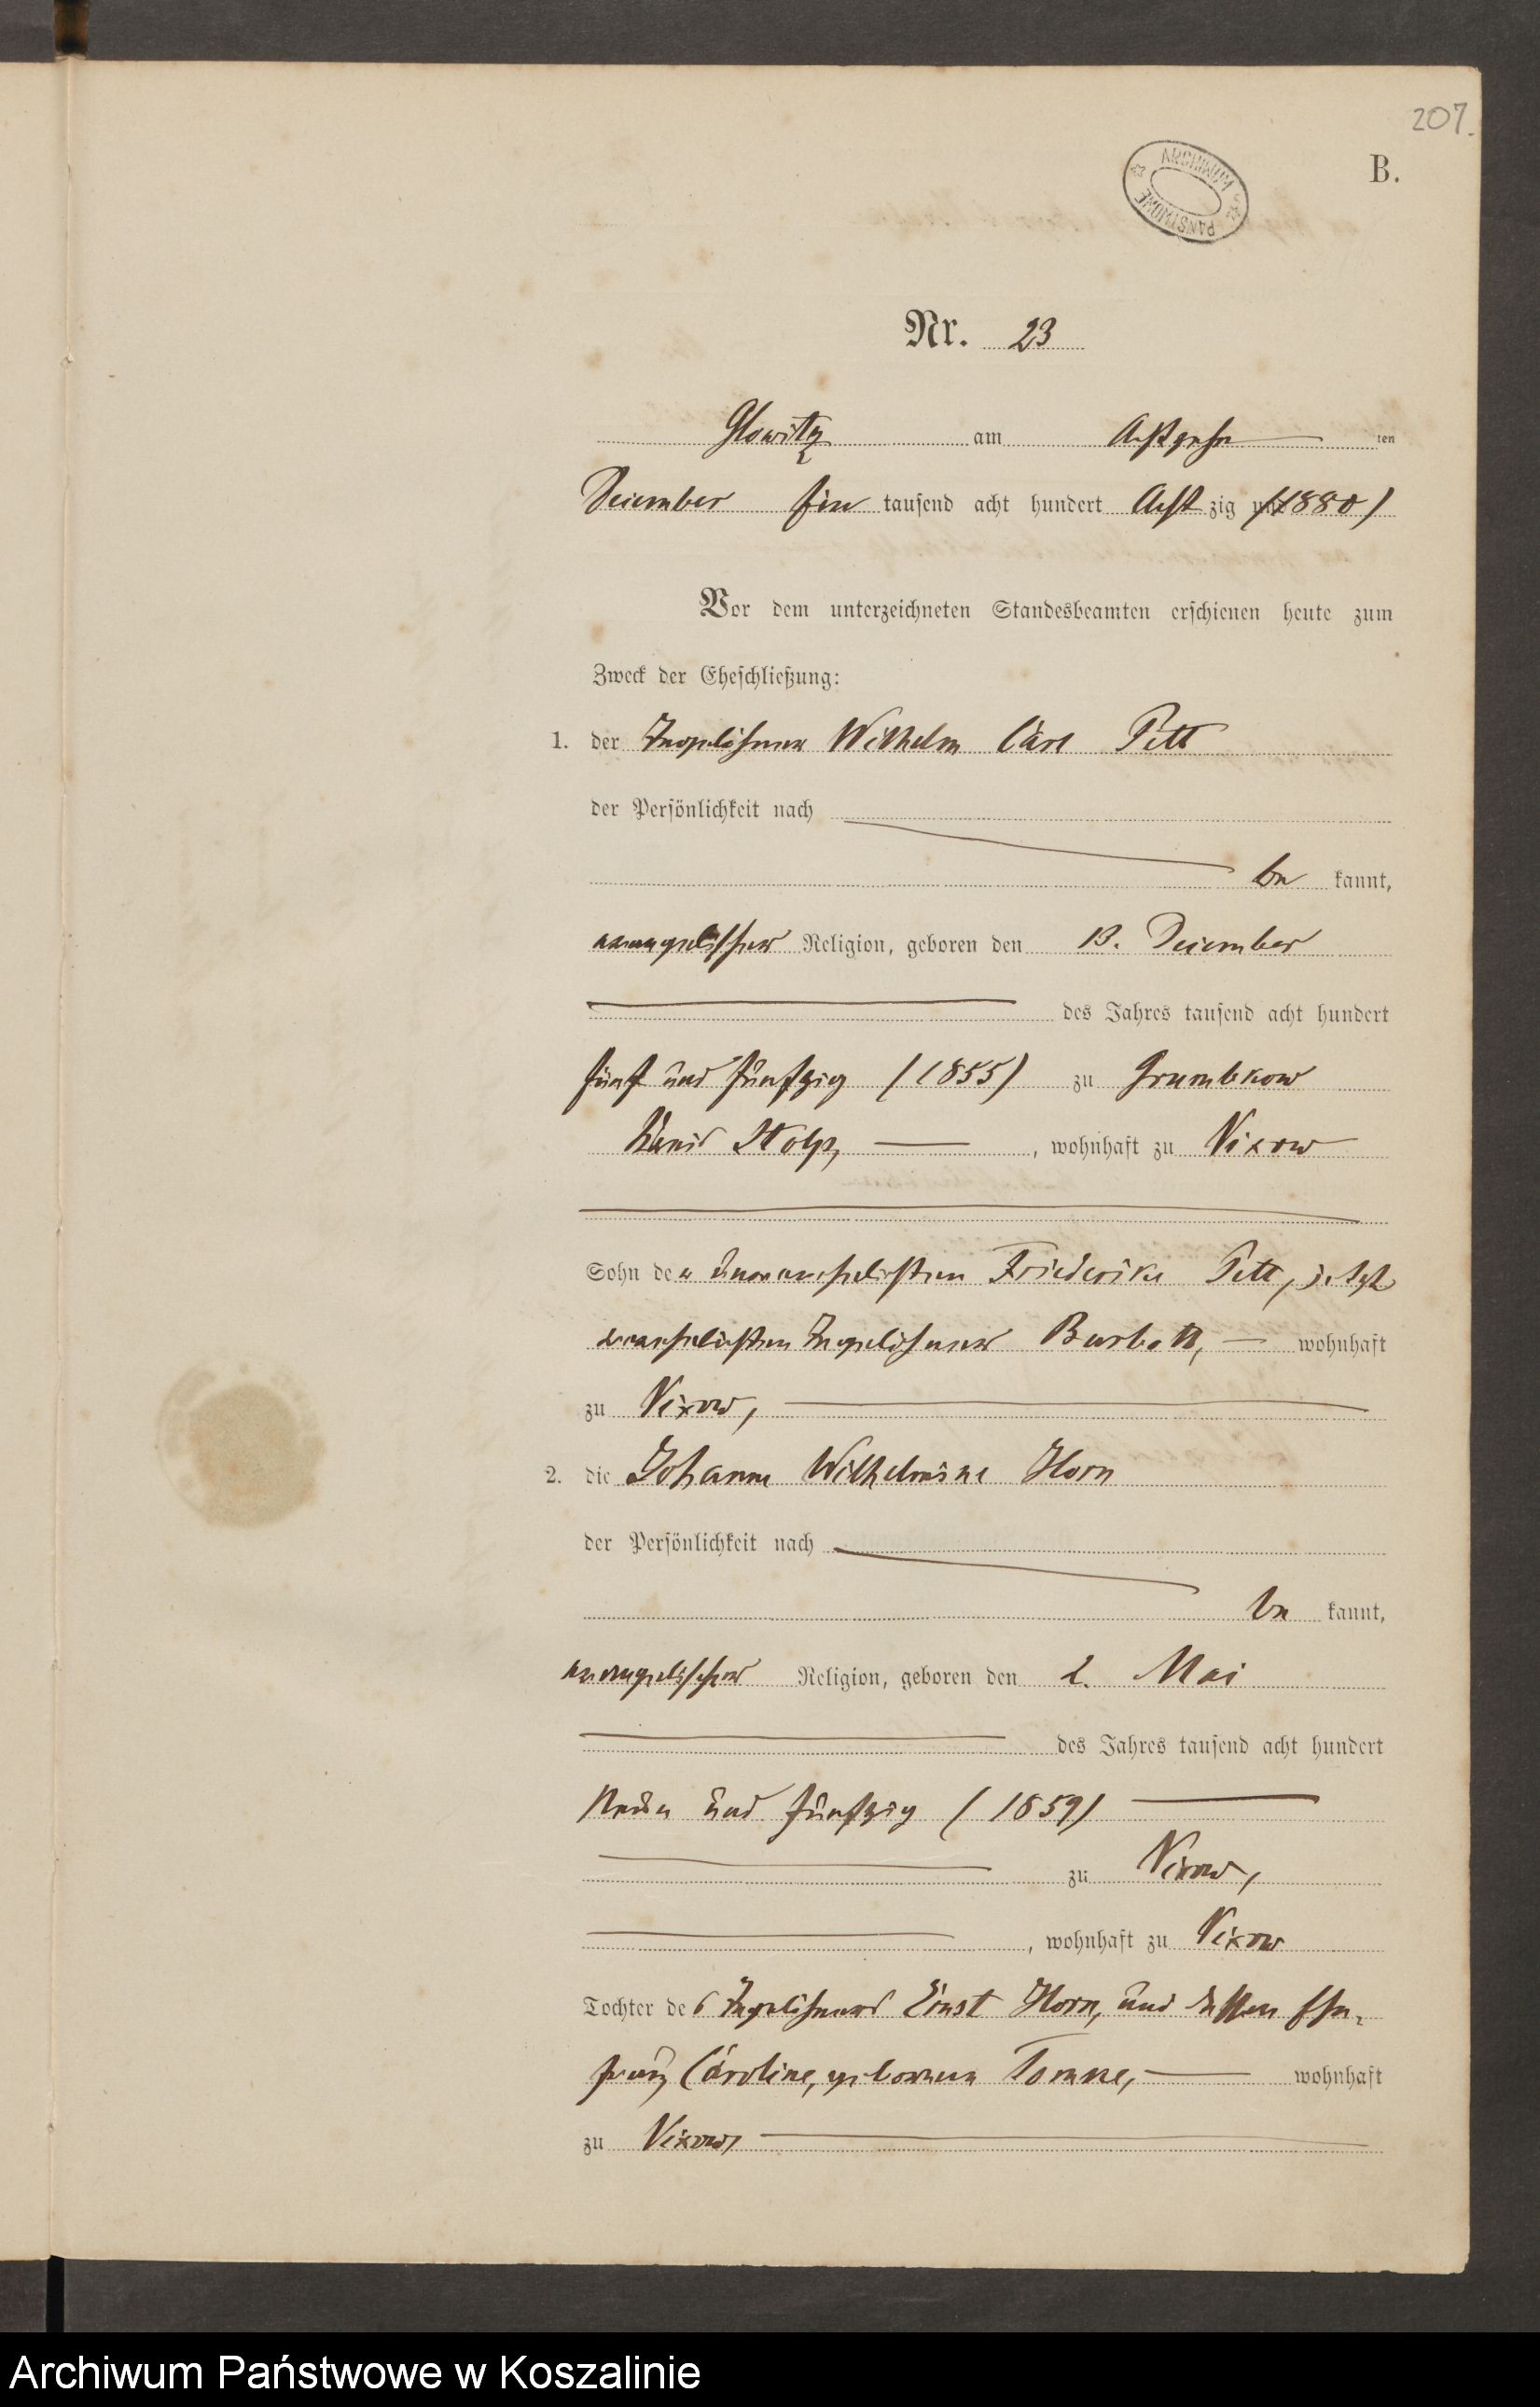 207.
B.
ARCHIWUM PAŃSTWOWE
Nr. 23
Glowitz am Achtzehn ten
December ein tausend acht hundert Acht zig und (1880)
Vor dem unterzeichneten Standesbeamten erschienen heute zum
Zweck der Eheschließung:
1. der Tagelöhner Wilhelm Carl Pett
der Persönlichkeit nach
be kannt,
evangelischer Religion, geboren den 13. December
des Jahres tausend acht hundert
fünf und fünfzig (1855) zu Grumbkow
Kreis Stolp, wohnhaft zu Vixow
Sohn der unverehelichten Friederike Pett, jetzt
verehelichten Tagelöhner wohnhaft
zu Vixow,
2. die Johanne Wilhelmine Horn
der Persönlichkeit nach
be kannt,
evangelischer Religion, geboren den 2. Mai
des Jahres tausend acht hundert
neun und fünfzig (1859)
zu Vixow,
, wohnhaft zu Vixow
Tochter des Tagelöhners Ernst Horn, und dessen Ehe-
frau Caroline, geborenen Tomke, wohnhaft
zu Vixow,
Archiwum Państwowe w Koszalinie